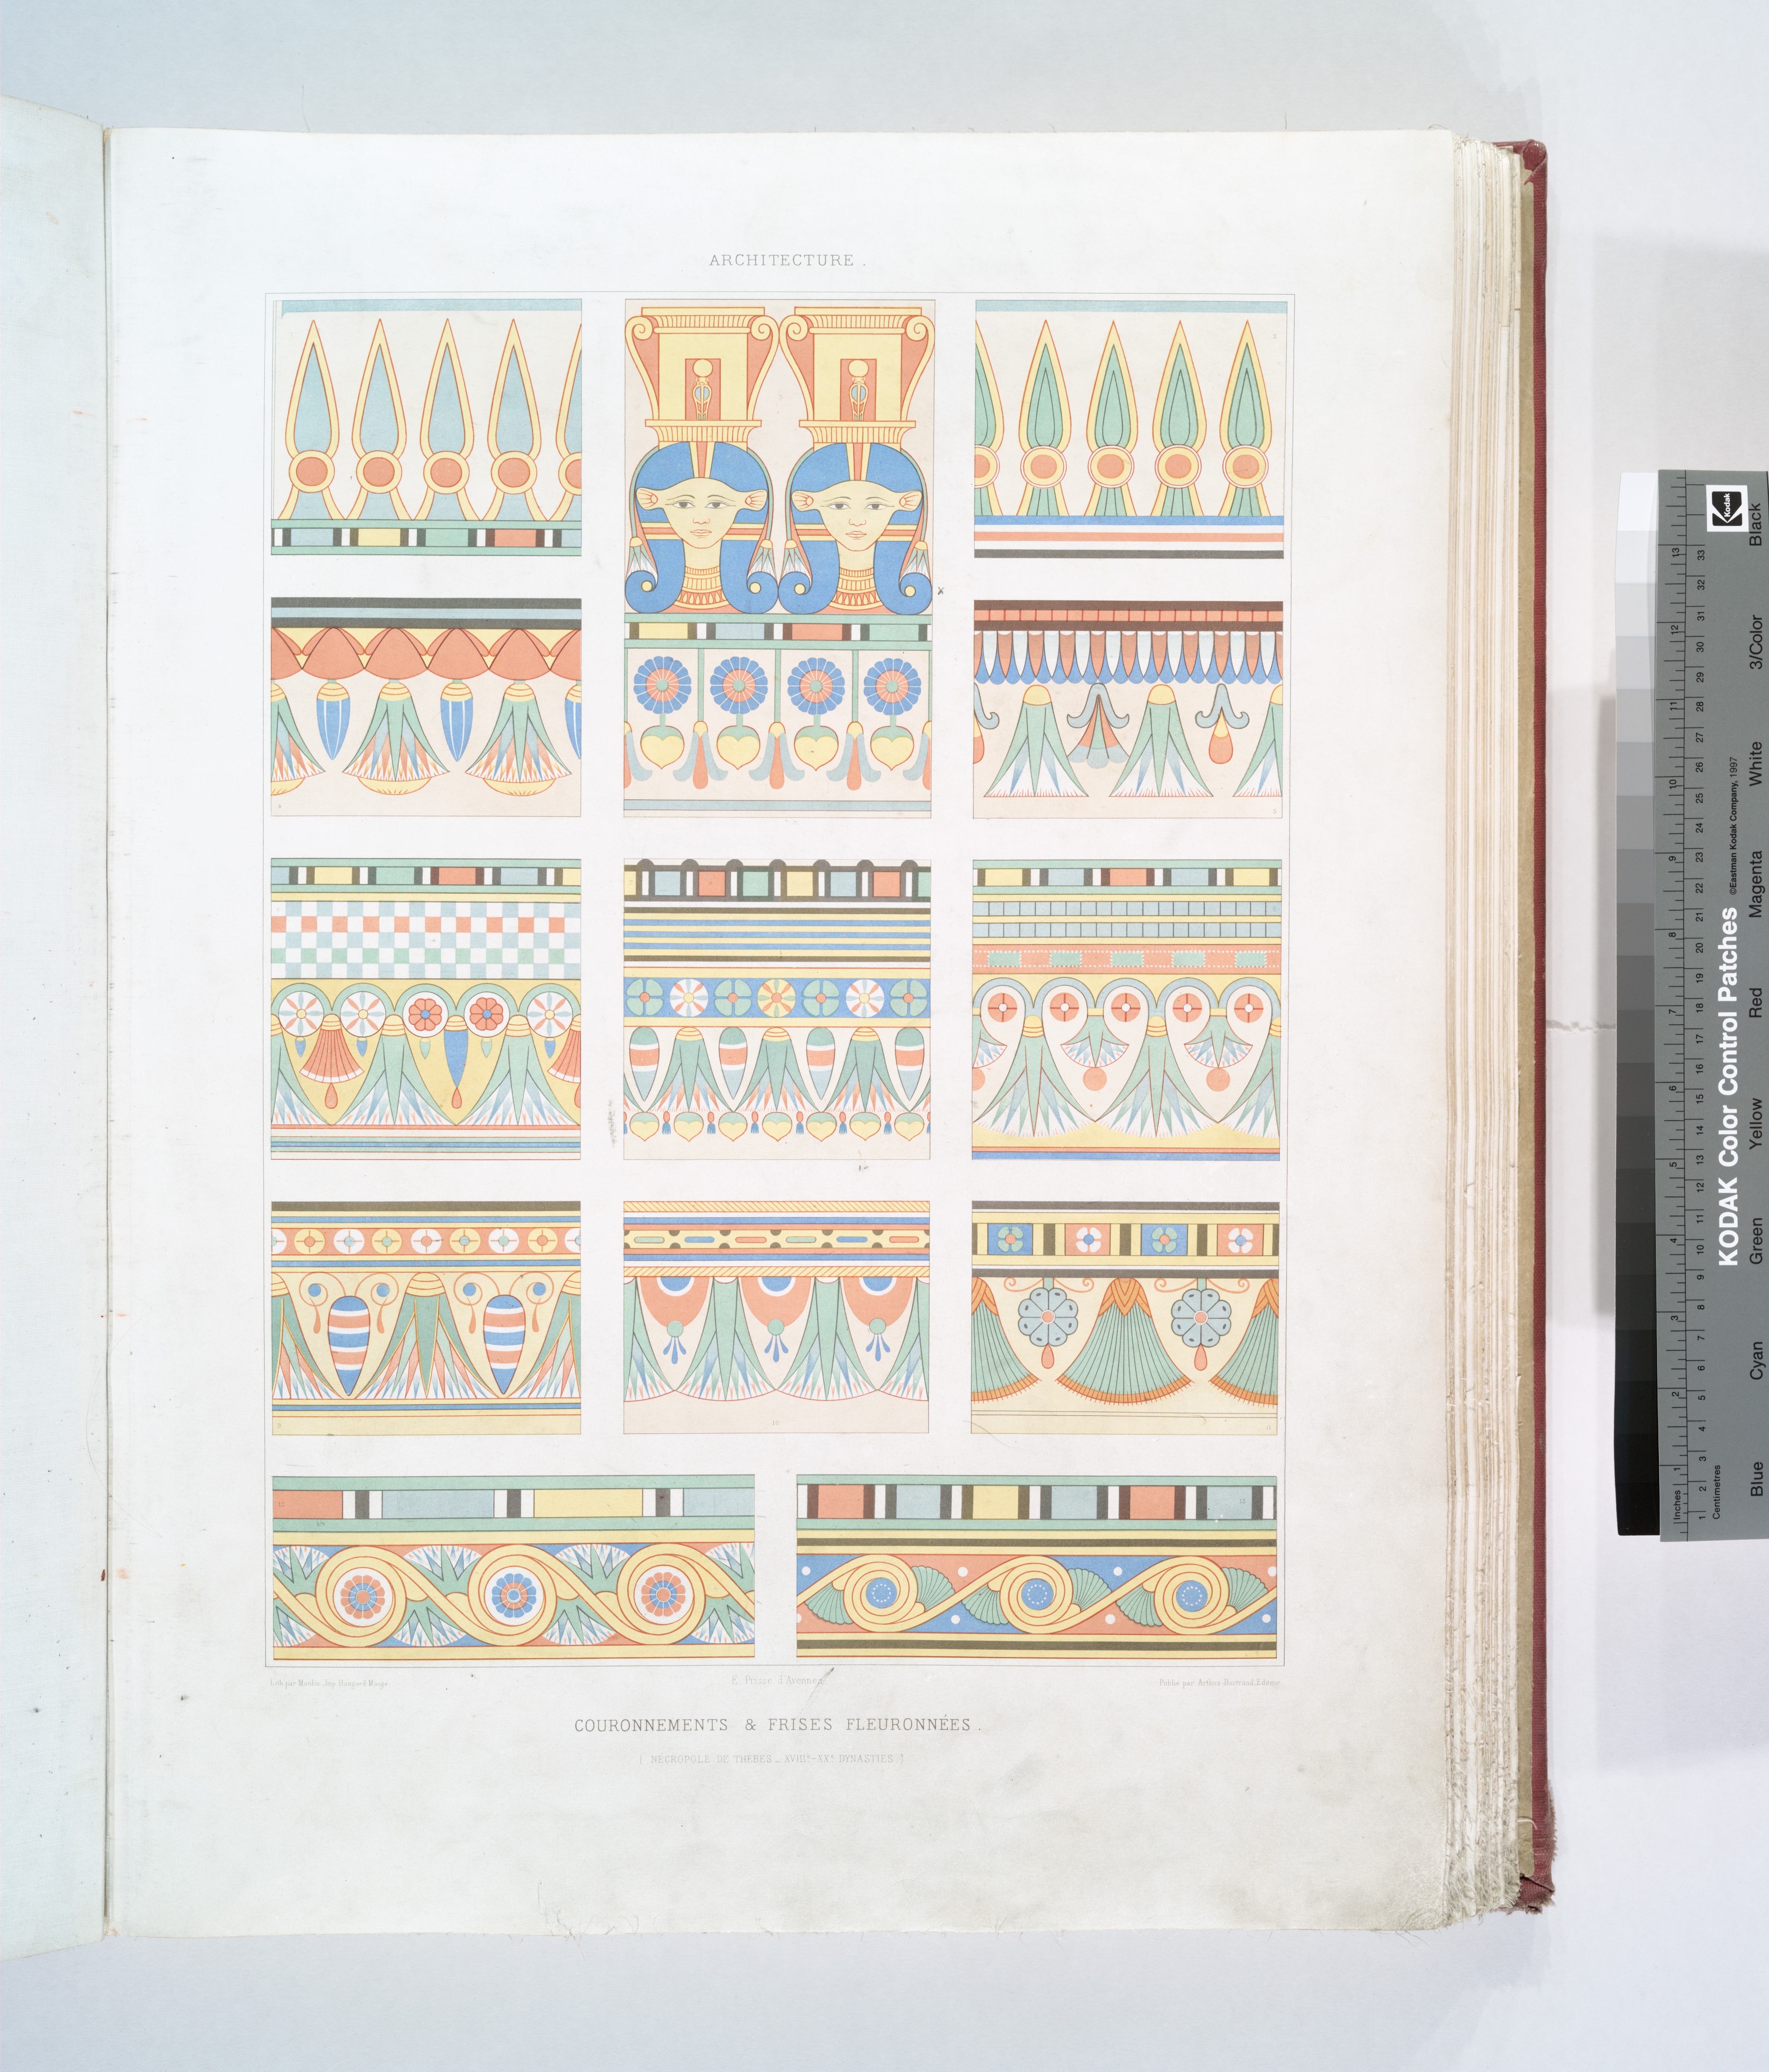 ARCHITECTURE.
Lith par Moulin, Imp. Hangard-Maugé
E. Prisse d'Avennes
Publié par Arthus-Bertrand, Editeur
COURONNEMENTS & FRISES FLEURONNÉES.
( NÉCROPOLE DE THÈBES _ XVIIIᵉ-XXᵉ DYNASTIES )
Kodak
KODAK Color Control Patches
©Eastman Kodak Company, 1997
Blue Cyan Green Yellow Red Magenta White 3/Color Black
Inches 1 2 3 4 5 6 7 8 9 10 11 12 13
Centimetres 1 2 3 4 5 6 7 8 9 10 11 12 13 14 15 16 17 18 19 20 21 22 23 24 25 26 27 28 29 30 31 32 33